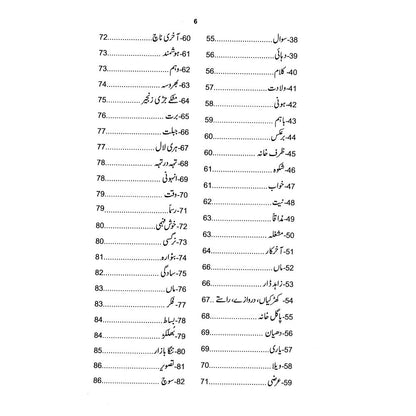 6
38-سوال..........55
39-دہائی..........56
40-کلام..........56
41-ولادت..........57
42-ہونی..........58
43-باہم..........59
44-برعکس..........60
45-ظرف خانہ..........60
46-شکوہ..........61
47-خواب..........61
48-نیت..........62
49-مذاقاً..........63
50-مشغلہ..........63
51-آخر کار..........64
52-ماں..........66
53-زاہد ڈار..........66
54-کھڑکیاں، دروازے، راستے..67
55-پاگل خانہ..........68
56-دھیان..........69
57-یاری..........69
58-ویلا..........70
59-عرضی..........71
60-آخری ناچ..........72
61-ہوشمند..........73
62-وہم..........73
63-بھروسہ..........74
64-جڑی زنجیر..........75
65-برت..........76
66-جبلت..........77
67-ہری لال..........77
68-تہہ در تہہ..........78
69-انہونی..........78
70-وقت..........79
71-رسماً..........79
72-خوش فہمی..........80
73-نرگسی..........80
74-بٹوارہ..........81
75-سادگی..........82
76-ماں..........83
77-فکر..........83
78-بساط..........84
79-بھلکڑ..........84
80-ننگا بازار..........85
81-تصویر..........86
82-سوچ..........86